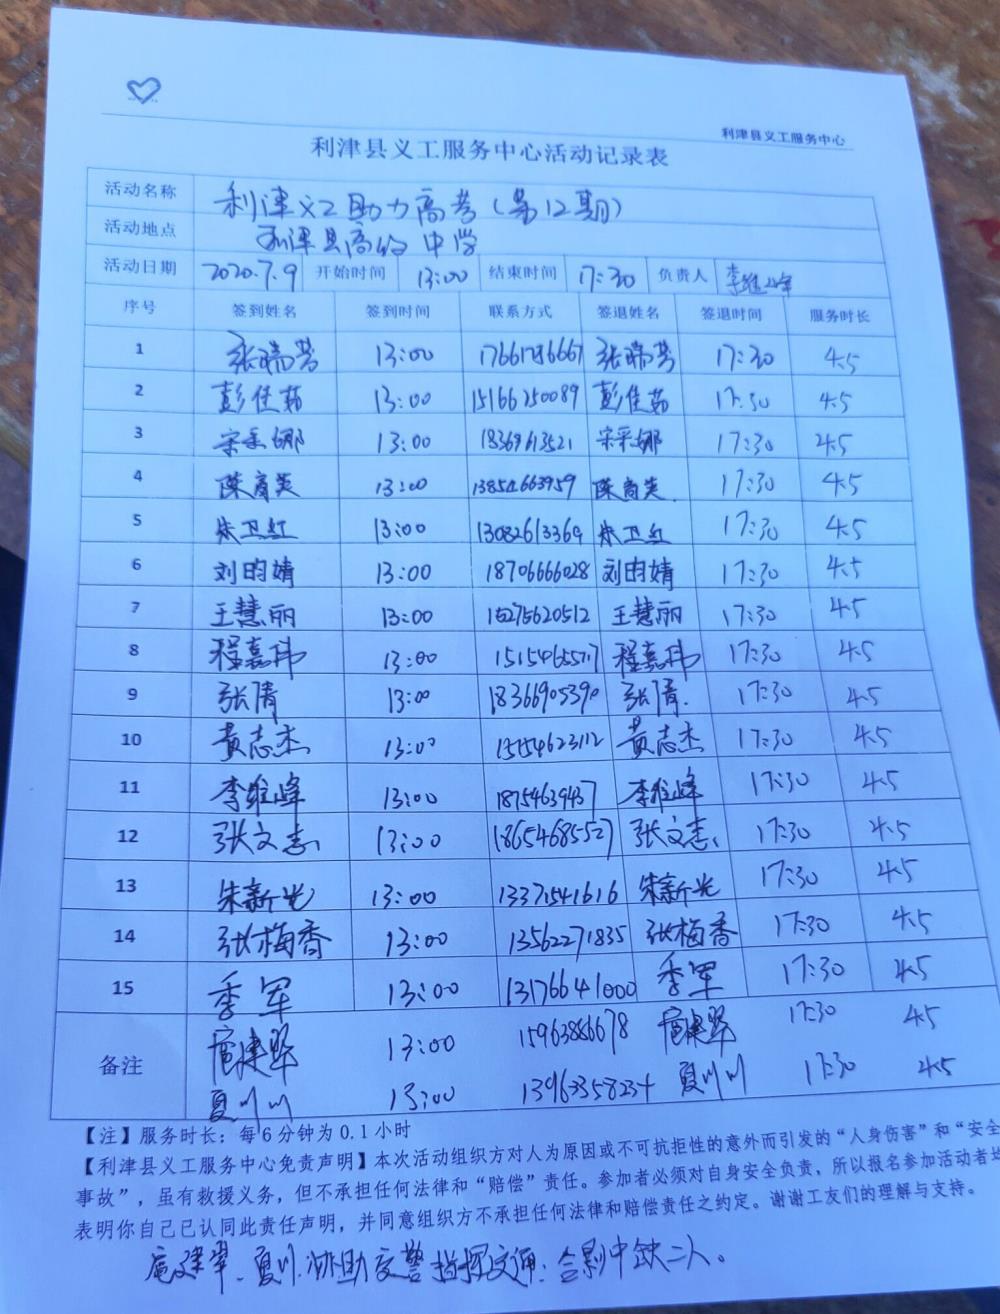 利津县义工服务中心
利津县义工服务中心活动记录表
活动名称 利津义工助力高考(第12期)
活动地点 利津县高级中学
活动日期 2020.7.9 开始时间 13:00 结束时间 17:30 负责人 李维峰
序号 签到姓名 签到时间 联系方式 签退姓名 签退时间 服务时长
1 张瑞芳 13:00 张瑞芳 17:30 4.5
2 彭佳茹 13:00 15166250089 彭佳茹 17:30 4.5
3 宋采娜 13:00 18369613521 宋采娜 17:30 4.5
4 陈育英 13:00 13854663959 陈育英 17:30 4.5
5 朱卫红 13:00 13082613369 朱卫红 17:30 4.5
6 刘昀婧 13:00 18706666028 刘昀婧 17:30 4.5
7 王慧丽 13:00 15275620512 王慧丽 17:30 4.5
8 程嘉伟 13:00 程嘉伟 17:30 4.5
9 张倩 13:00 18366905390 张倩 17:30 4.5
10 黄志杰 13:00 15154623112 黄志杰 17:30 4.5
11 李维峰 13:00 18754639437 李维峰 17:30 4.5
12 张文志 13:00 18654685527 张文志 17:30 4.5
13 朱新光 13:00 13371541616 朱新光 17:30 4.5
14 张梅香 13:00 13562271835 张梅香 17:30 4.5
15 季军 13:00 13176641000 季军 17:30 4.5
备注 扈建翠 13:00 15963886678 扈建翠 17:30 4.5
夏川川 13:00 13963358234 夏川川 17:30 4.5
【注】服务时长:每6分钟为0.1小时
【利津县义工服务中心免责声明】本次活动组织方对人为原因或不可抗拒性的意外而引发的“人身伤害”和“安全
事故”,虽有救援义务,但不承担任何法律和“赔偿”责任。参加者必须对自身安全负责,所以报名参加活动者均
表明你自己已认同此责任声明,并同意组织方不承担任何法律和赔偿责任之约定。谢谢工友们的理解与支持。
扈建翠、夏川川协助交警指挥交通,合影中缺二人。